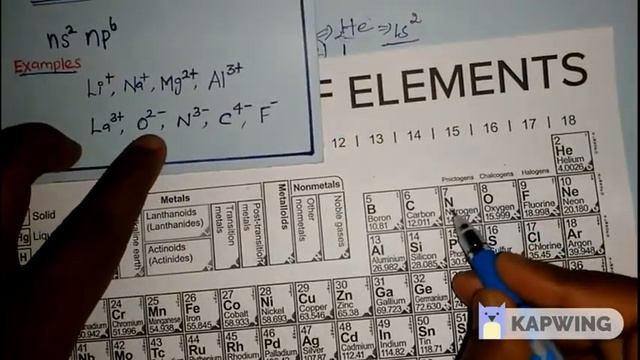 ns² np⁶
⇒ He ⇒ 1s²
Examples
Li⁺, Na⁺, Mg²⁺, Al³⁺
La³⁺, O²⁻, N³⁻, C⁴⁻, F⁻
F ELEMENTS
12 13 14 15 16 17 18
Pnictogens Chalcogens Halogens
2
He
Helium
4.0026
Solid
Metals
Metalloids
Nonmetals
Lanthanoids
(Lanthanides)
Actinoids
(Actinides)
Transition
metals
Post-transition
metals
Other
nonmetals
Noble gases
5 6 7 8 9 10
B C N O F Ne
Boron Carbon Nitrogen Oxygen Fluorine Neon
10.81 12.011 15.999 18.998 20.180
13 14 17 18
Al Si P S Cl Ar
Aluminium Silicon Chlorine Argon
26.982 28.085 35.45 39.948
24 25 26 27 28 29 30 31 32
Cr Mn Fe Co Ni Cu Zn Ga Ge
Chromium Manganese Iron Cobalt Nickel Copper Zinc Gallium Germanium
51.996 54.938 55.845 58.933 58.693 63.546 65.38 69.723 72.630
42 43 44 45 46 47 48 49 50
Pd Ag Cd In Sn
Palladium Silver Cadmium Indium Tin
106.42 107.87 112.41 114.82 118.71
KAPWING